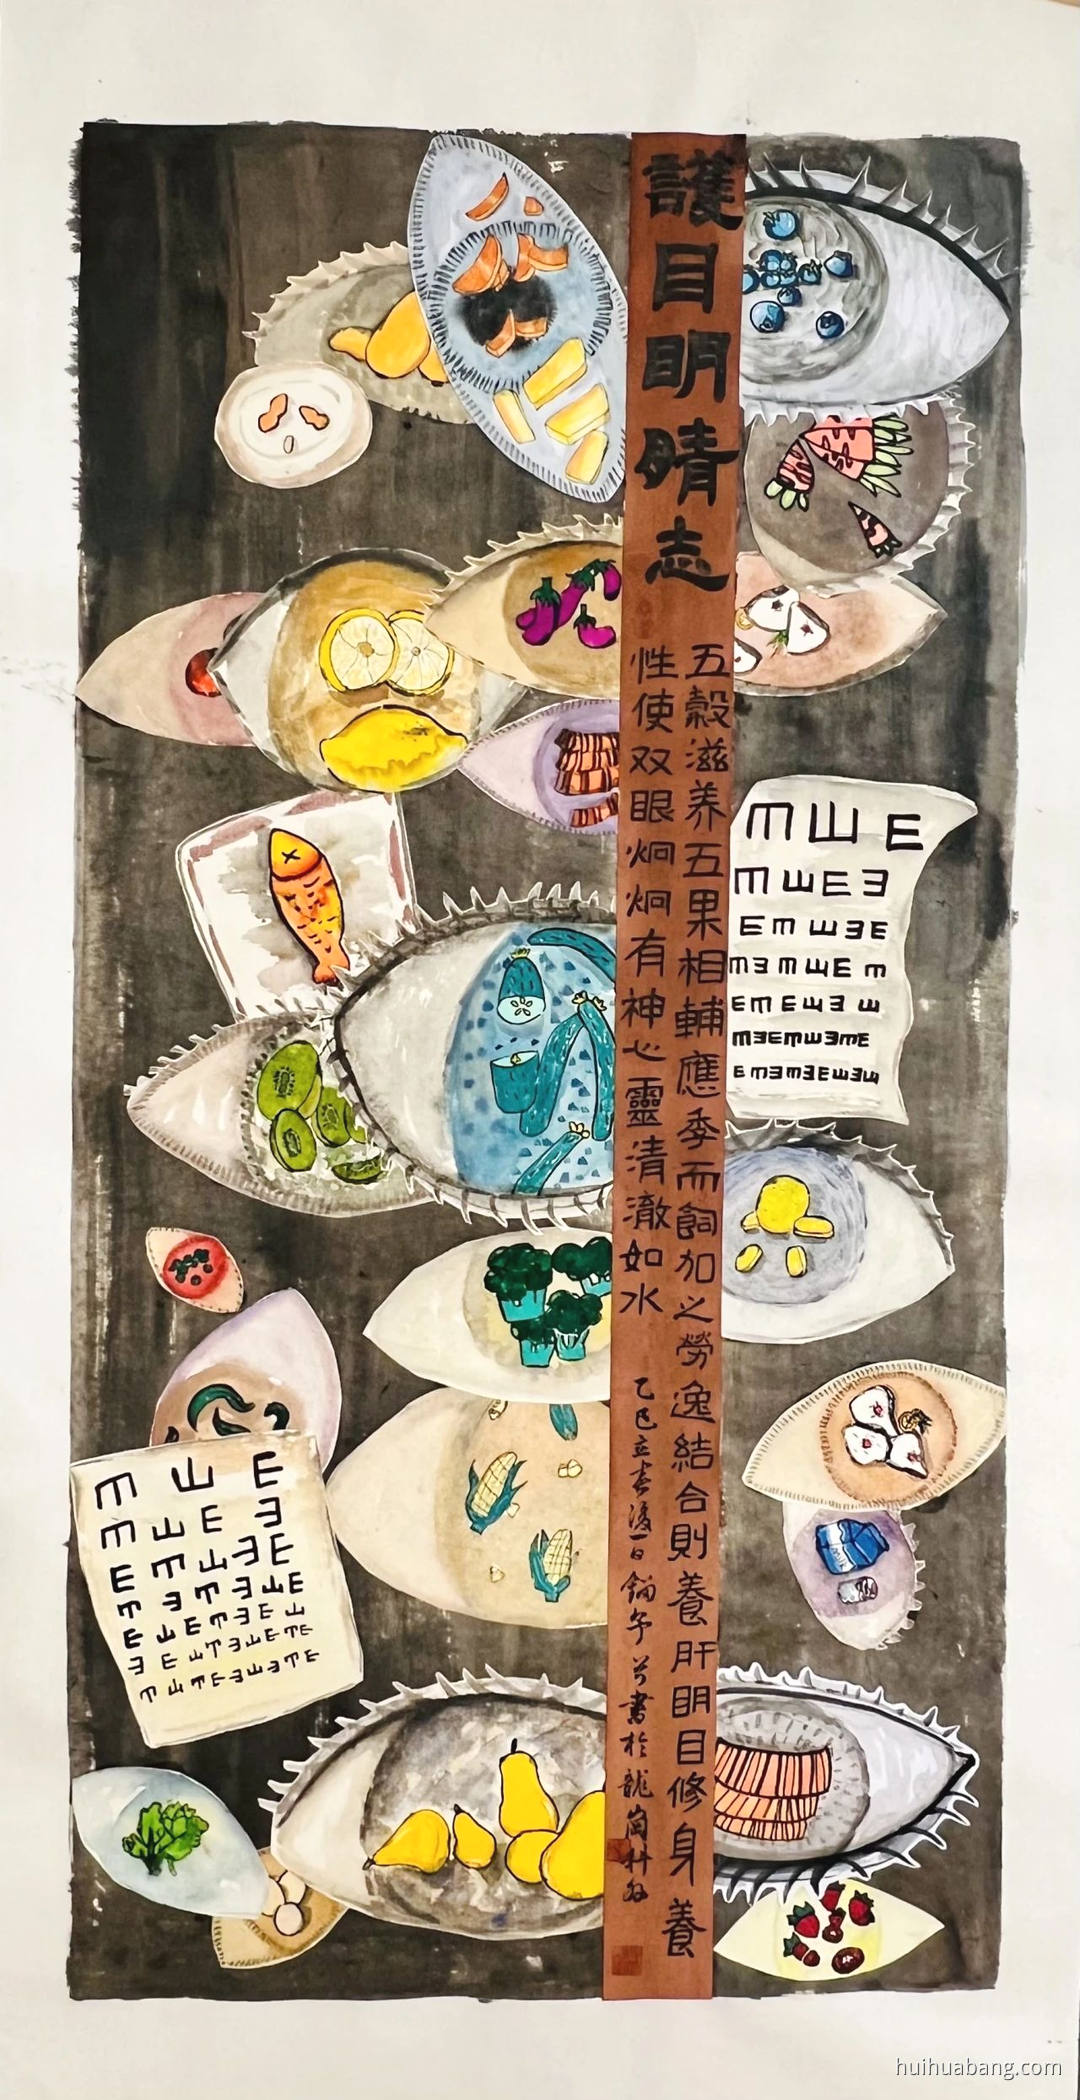 護目明睛志
五穀滋养五果相輔應季而飼加之勞逸結合則養肝明目修身養
性使双眼炯炯有神心靈清澈如水
乙巳立春後一日 書於龍崗
huihuabang.com